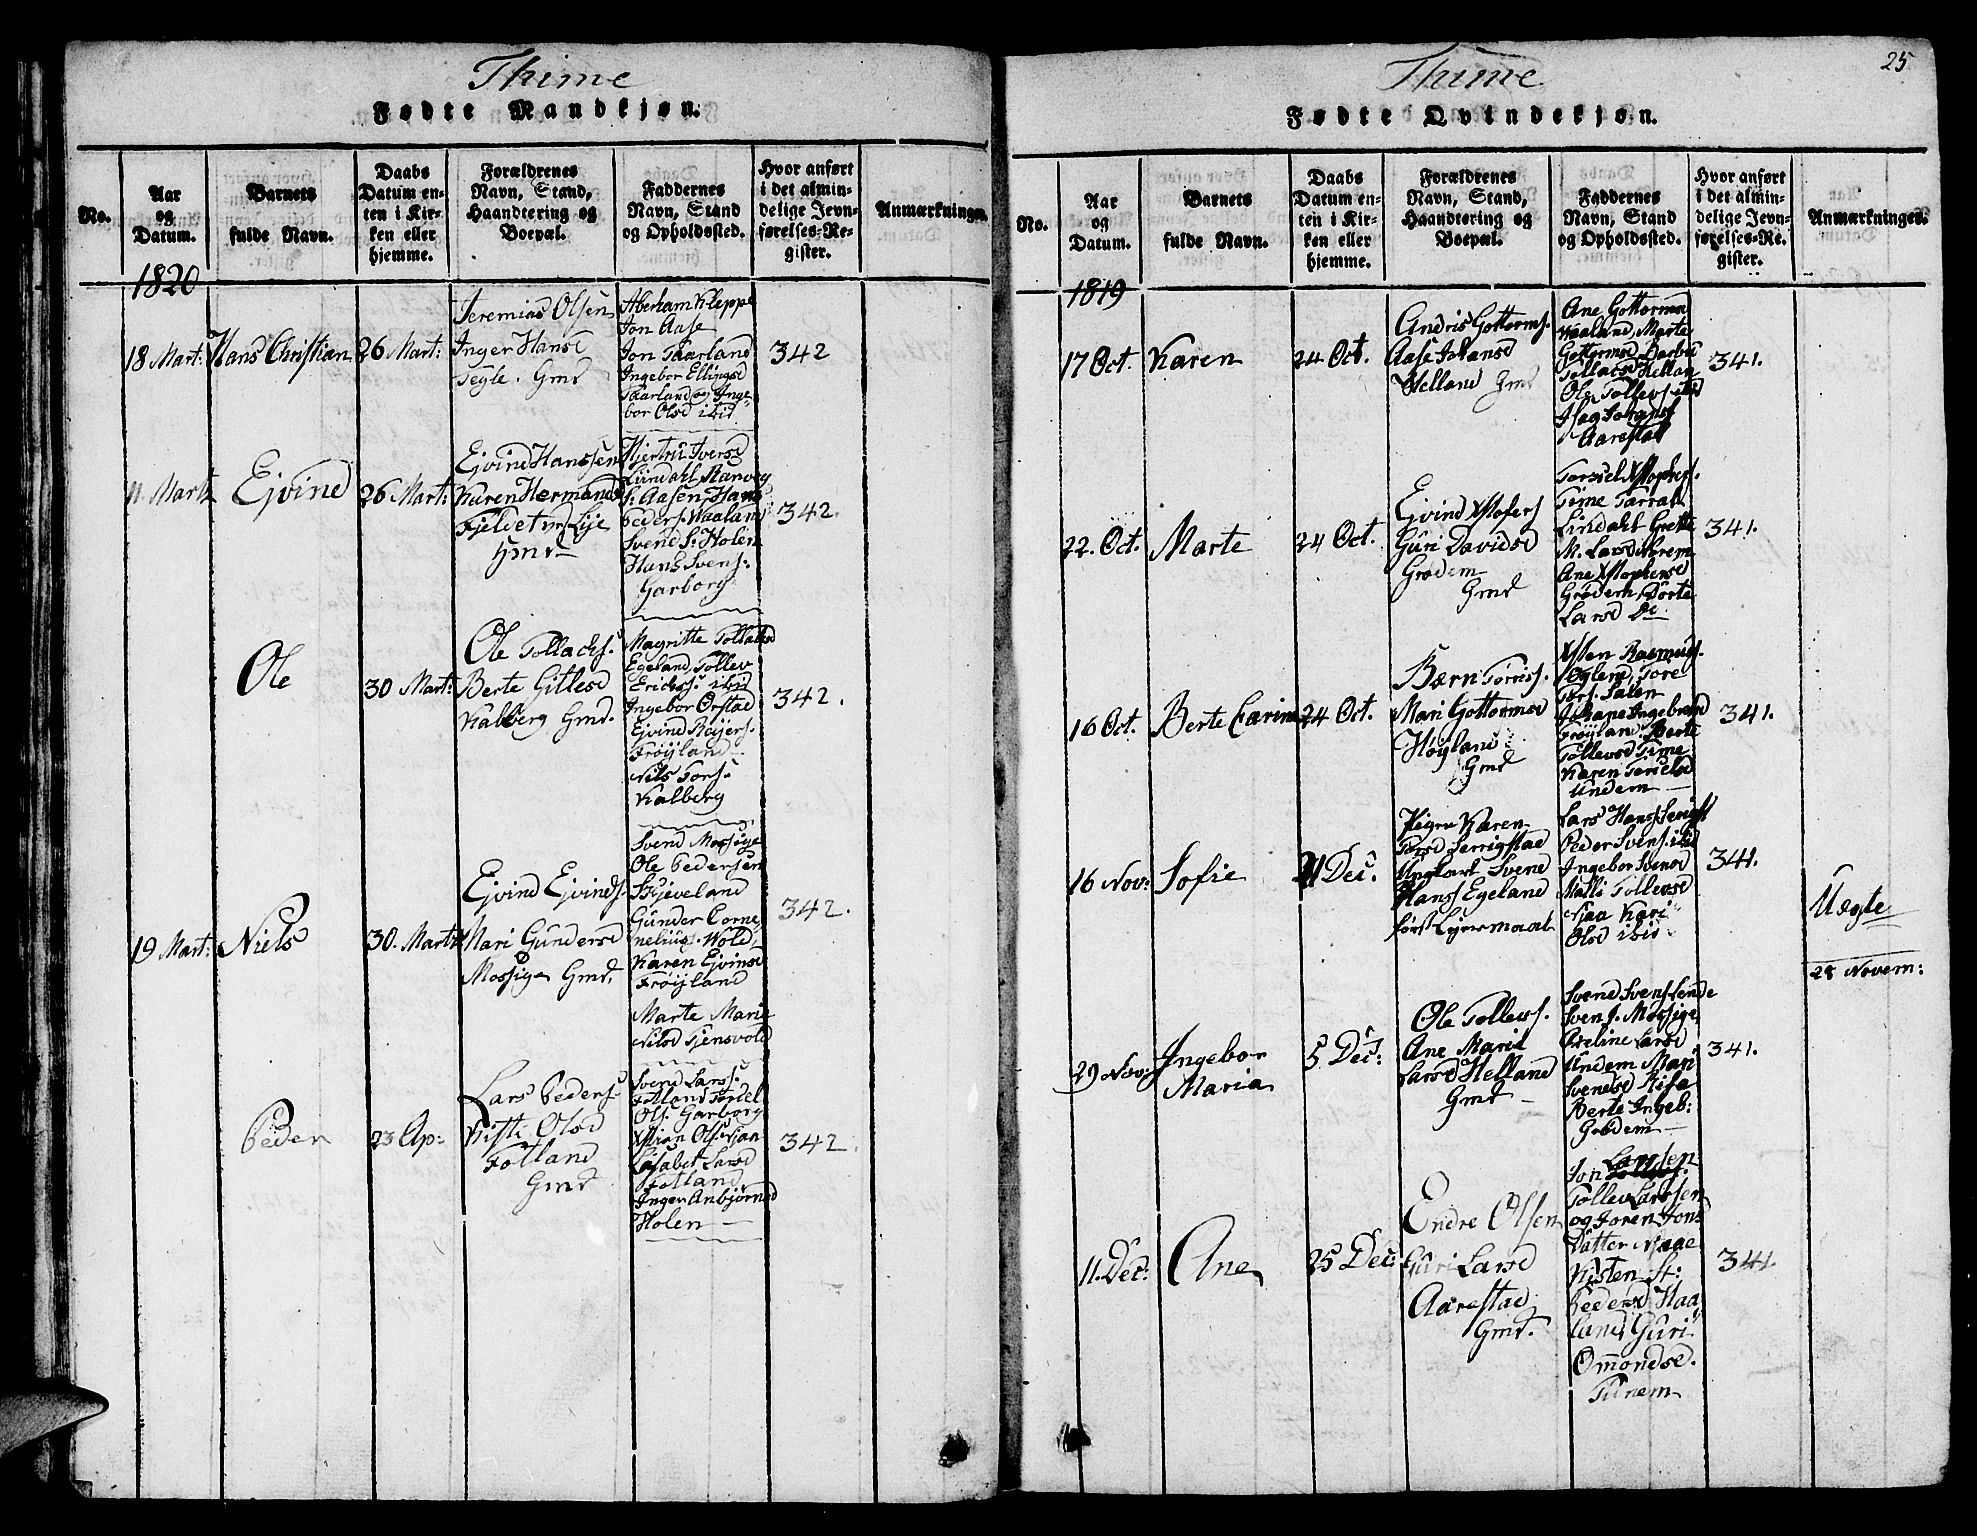 Thime
Fødte Mandkjøn.
No.
Aar
og
Datum.
Barnets
fulde Navn.
Daabs
Datum en-
ten i Kir-
ken eller
hjemme.
Forældrenes
Navn, Stand,
Haandtering og
Boepæl.
Faddernes
Navn, Stand
og Opholdssted.
Hvor anført
i det almin-
delige Jevn-
førelses-Re-
gister.
Anmærkninger.
1820
18 Mart:
Hans Christian
26 Mart:
Jeremias Olsen
Inger Hansd
Tegle. Gmd
Aberham Kleppe
Jon Aase
Jon Taarland
Ingebor Ellingsd
Taarland og Inge-
bor Olsd ibid
342
11. Mart
Ejvind
26 Mart:
Ejvind Hanssen
Karen Hermands
Gmd
Iversd
Lundahl Ranveg
S: Aasen Hans
Peders. Waaland
Svend S: Holen
Hans Svens:
Garborg
342.
Ole
30 Mart:
Ole Tollachs.
Berte Gitlesd
Kalberg Gmd.
Magritte Tollaksd
Egeland, Tollev
Ericks: ibid
Ingebor Orstad
Ejvind Reijers.
Frøyland
Nils Tors:
Kalberg
342.
19 Mart:
Niels
30. Mart:
Ejvind Ejvinds.
Mari Gundersd
Mossige Gmd.
Svend Mossige
Ole Pedersen
Skjeveland
Gunder Corne-
nelius: Wold
Karen Ejvinsd
Frøyland
Marte Marie
Nilsd Tjensvold
342.
Peder
23 Ap:
Lars Peders:
Kisti Olsd
Fotland
Gmd
Svend Larss:
Fotland Torkel
Ols: Garborg
Xstian Olsen
Lisabet Larsd
Fotland
Inger Anbjørnsd
Holen
342.
25
Thime
Fødte Qvindekjøn.
No.
Aar
og
Datum.
Barnets
fulde Navn.
Daabs
Datum en-
ten i Kir-
ken eller
hjemme.
Forældrenes
Navn, Stand,
Haandtering og
Boepæl.
Faddernes
Navn, Stand
og Opholdssted.
Hvor anført
i det almin-
delige Jevn-
førelses-Re-
gister.
Anmærkninger.
1819
17 Oct.
Karen
24 Oct.
Andris Gottorms.
Aase Johansd
Helland Gmd
Ane Gottormsd
Waaland, Marte
Gottormsd
Helland
Ole Tollevs: ibid
Aarestad
341.
22. Oct.
Marte
24 Oct.
Ejvind Xstofers
Guri Davidsd
Grødem
Gmd
Torkel Xstophers.
Time
Lindahl Grette
M. Larsd
Ane Xstophersd
Grødem, Børte
Larsd
341.
16 Oct.
Berte Carine
24 Oct.
Bærn Torriss.
Mari Gottormsd
Høyland
Gmd
Xsten Rasmuds.
Tore
Tors. Salen
Johane Ingebretsd
Frøyland Berte
Tollevsd Time
Karen Torkelsd
Undem
341.
16 Nov:
Sofie
Dec:
Pigen Karen
Torsd Serrigstad
Ungkarl Svend
Hanss Egeland
først Lejermaal
Lars Hanss
Peder Svens. ibid
Ingebor Svensd
Malli Tollevsd
Njaa Kari
Olsd ibid
341.
Uægte
28 Novem:
29 Nov:
Ingebor
Maria
5 Dec:
Ole Tollevs.
Ane Marie
Larsd Helland
Gmd
Svend Svens
Svens. Mossige
Larsd
Undem Mari
Svendsd
Berte Ingeb:
Grødem
341.
11. Dec:
Ane
25 Dec:
Endre Olsen
Guri Larsd
Aarestad
Gmd.
Jon Larsen
Tollev Larssen
og Joren Jons
Datter Njaae
Kisten St:
Pedersd Haa-
land Guri
Omondsd.
Tunem
341.